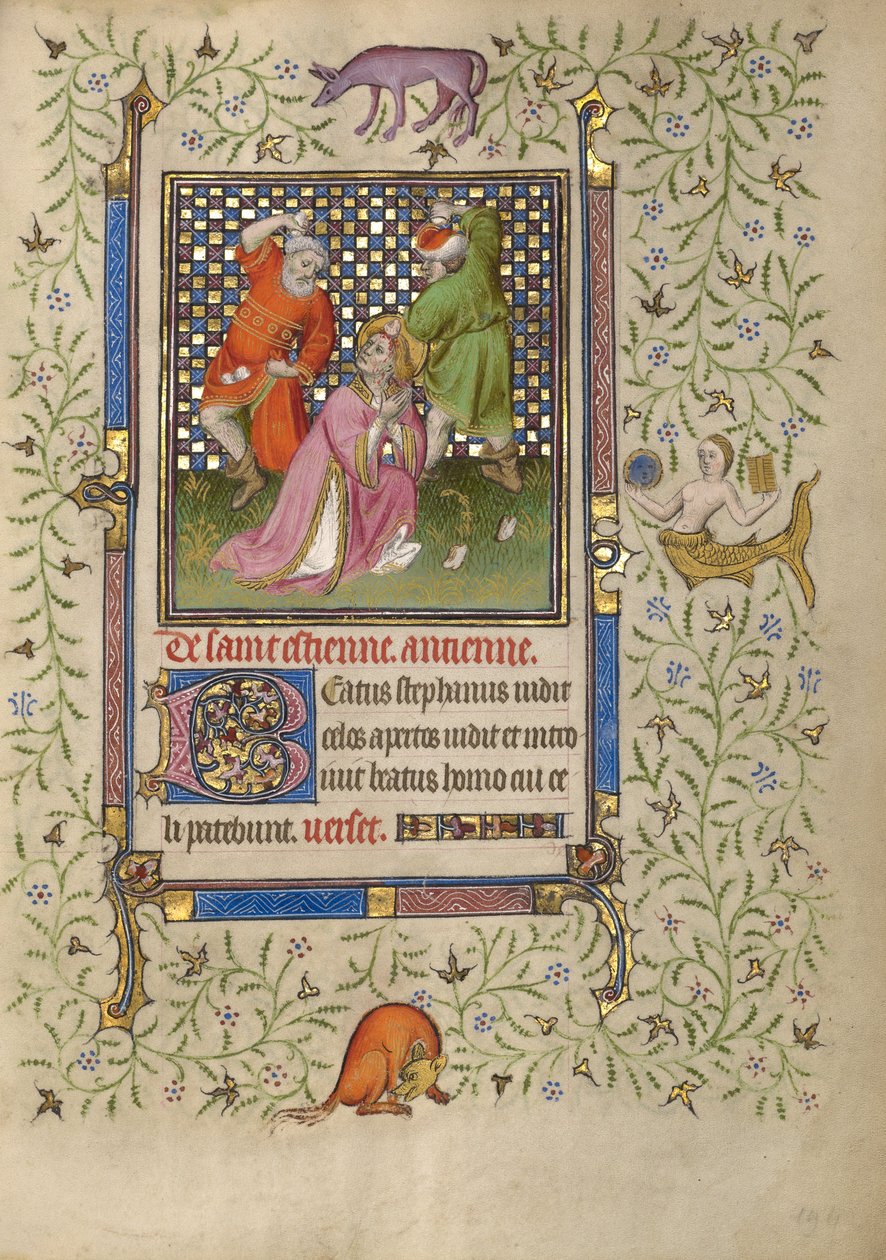 De saint estienne. antienne.
Beatus stephanus uidit
celos apertos uidit et intro
iuit beatus homo cui ce
li patebunt. verset.
194